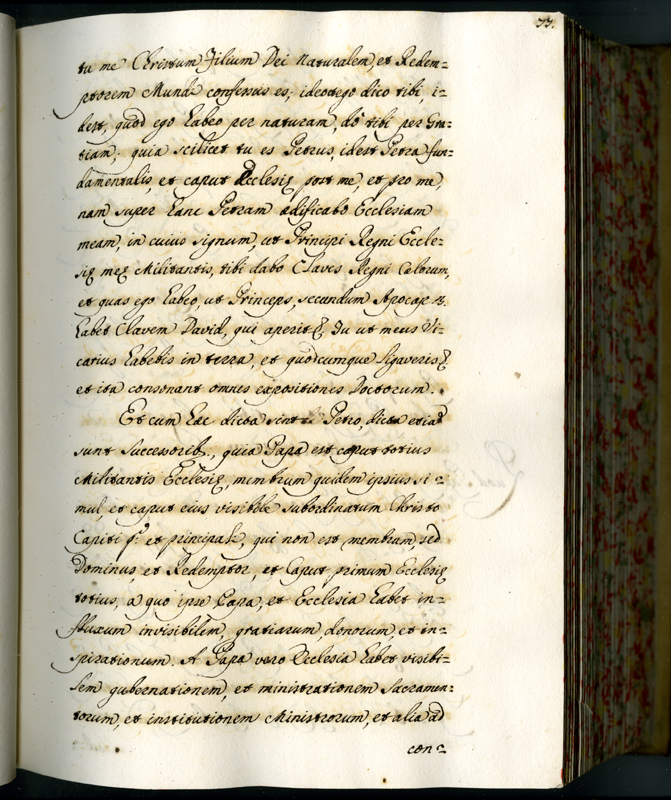 77.
tu me Christum Filium Dei Naturalem, et Redem=
ptorem Mundi confessus es; ideo et ego dico tibi, i=
dest, quod ego habeo per naturam, do tibi per Gra=
tiam; quia scilicet tu es Petrus, idest Petra fun=
damentalis, et caput Ecclesię post me, et pro me,
nam super hanc Petram ædificabo Ecclesiam
meam, in cuius signum, ut Principi Regni Eccle=
się meę Militantis, tibi dabo Claves Regni Cœlorum,
et quas ego habeo, ut Princeps, secundum Apocap. 3.
habet Clavem David, qui aperit &, tu ut meus Vi=
carius habebis in terra, et quodcumque ligaveris &
et ita consonant omnes expositiones Doctorum.
Et cum hæc dicta sint Petro, dicta etiã
sunt Successorib., quia Papa est caput totius
Militantis Ecclesię, membrum quidem ipsius si=
mul, et caput eius visibile subordinatum Christo
Capiti et principale, qui non est membrum, sed
Dominus, et Redemptor, et Caput primum Ecclesię
totius, a quo ipse Papa, et Ecclesia habet in=
fluxum invisibilem, gratiarum, donorum, et in=
spirationum. A Papa vero Ecclesia habet visibi=
lem gubernationem, et ministrationem Sacramen=
torum, et institutionem Ministrorum, et alia ad
con=